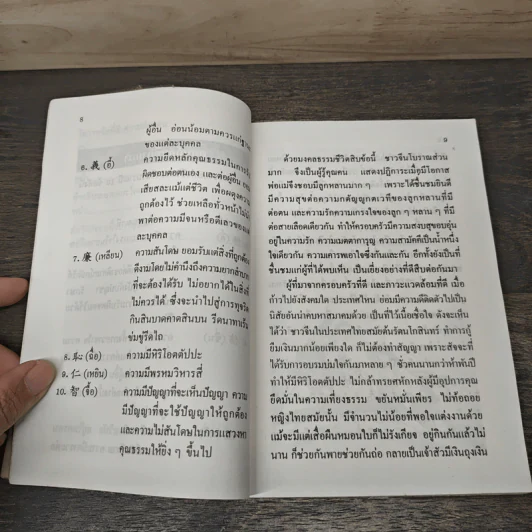 8
ผู้อื่น อ่อนน้อมตามควรแก่ฐานะ
ของแต่ละบุคคล
6. 義 (อี้) ความยึดหลักคุณธรรมในการ
ผิดชอบต่อตนเอง และต่อผู้อื่น
เสียสละแม้แต่ชีวิต เพื่อผดุงความ
ถูกต้องไว้ ช่วยเหลือทั่วหน้าไม่
พาต่อความมีจนหรือดีเลวของแ
ละบุคคล
7. 廉 (เหลียน) ความสันโดษ ยอมรับแต่สิ่งที่ถูกต้อง
ดีงามโดยไม่คำนึงถึงความยากลำบาก
ที่จะต้องได้รับ ไม่อยากได้ในสิ่งที่
ไม่ควรได้ ซึ่งจะนำไปสู่การทุจริต
กินสินบาดคาดสินบน รีดนาทาเร้น
ข่มขู่รีดไถ
8. 恥 (ฉื่อ) ความมีหิริโอตตัปปะ
9. 仁 (เหยิน) ความมีพรหมวิหารสี่
10. 智 (จื้อ) ความมีปัญญาที่จะเห็นปัญญา ความ
มีปัญญาที่จะใช้ปัญญาให้ถูกต้อง
และความไม่สันโดษในการแสวงหา
คุณธรรมให้ยิ่ง ๆ ขึ้นไป
9
ด้วยมงคลธรรมชีวิตสิบข้อนี้ ชาวจีนโบราณส่วน
มาก จึงเป็นผู้รู้คุณคน แสดงปฏิการะเมื่อมีโอกาส
พ่อแม่จึงชอบมีลูกหลานมาก ๆ เพราะได้ชื่นชมยินดี
มีความสุขต่อความกตัญญูกตเวทีของลูกหลานที่มี
ต่อตน และความรักความเกรงใจของลูก ๆ หลาน ๆ ที่มี
ต่อสายเลือดเดียวกัน ทำให้ครอบครัวมีความสงบสุขอบอุ่น
อยู่ในความรัก ความเมตตาการุญ ความสามัคคีเป็นน้ำหนึ่ง
ใจเดียวกัน ความเคารพเอาใจซึ่งกันและกัน อีกทั้งยังเป็นที่
ชื่นชมแก่ผู้ที่ได้พบเห็น เป็นเยี่ยงอย่างที่ดีสืบต่อกันมา
ผู้ที่มาจากครอบครัวที่ดี และภาวะแวดล้อมที่ดี เมื่อ
ก้าวไปยังสังคมใด ประเทศไหน ย่อมมีความดีติดตัวไปเป็น
นิสัยอันน่าคบหาสมาคมด้วย เป็นที่ไว้เนื้อเชื่อใจ ดังจะเห็น
ได้ว่า ชาวจีนในประเทศไทยสมัยต้นรัตนโกสินทร์ ทำการกู้
ยืมเงินมากน้อยเพียงใด ก็ไม่ต้องทำสัญญา เพราะสัจจะที่
ได้รับการอบรมบ่มใจกันมาหลาย ๆ ชั่วคนนานกว่าห้าพันปี
ทำให้มีหิริโอตตัปปะ ไม่กล้าทรยศหักหลังผู้มีอุปการคุณ
ยึดมั่นในความเที่ยงธรรม ขยันหมั่นเพียร ไม่ท้อถอย
หญิงไทยสมัยนั้น มีจำนวนไม่น้อยที่พอใจแต่งงานด้วย
แม้จะมีแต่เสื่อผืนหมอนใบก็ไม่รังเกียจ อยู่กินกันแล้วไม่
นาน ก็ช่วยกันพายช่วยกันถ่อ กลายเป็นเจ้าสัวมีเงินถุงเงิน